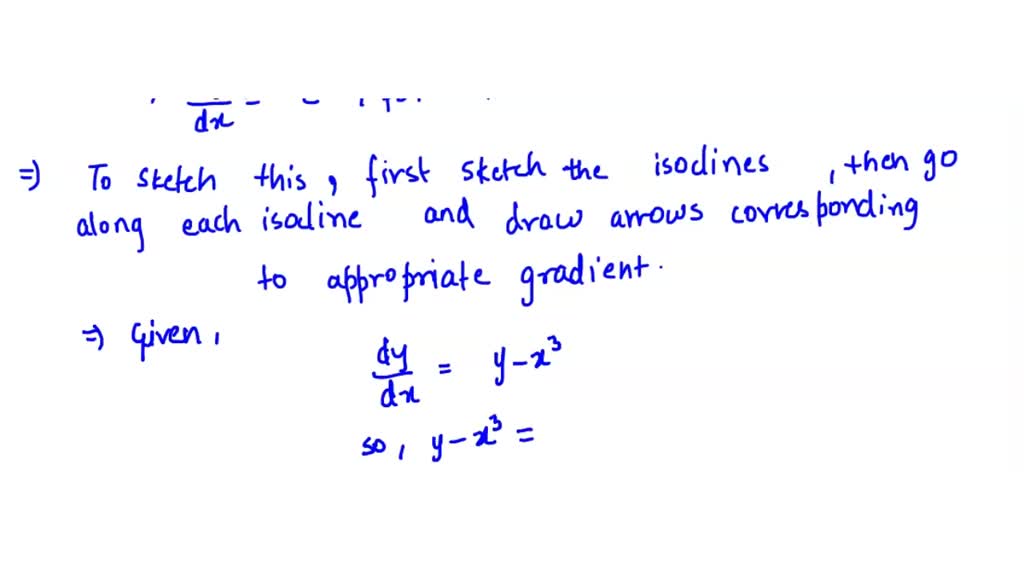 dx
=) To sketch this, first sketch the isoclines, then go
along each isocline and draw arrows corresponding
to appropriate gradient.
=) Given,
dy/dx = y-x³
so, y-x³ =